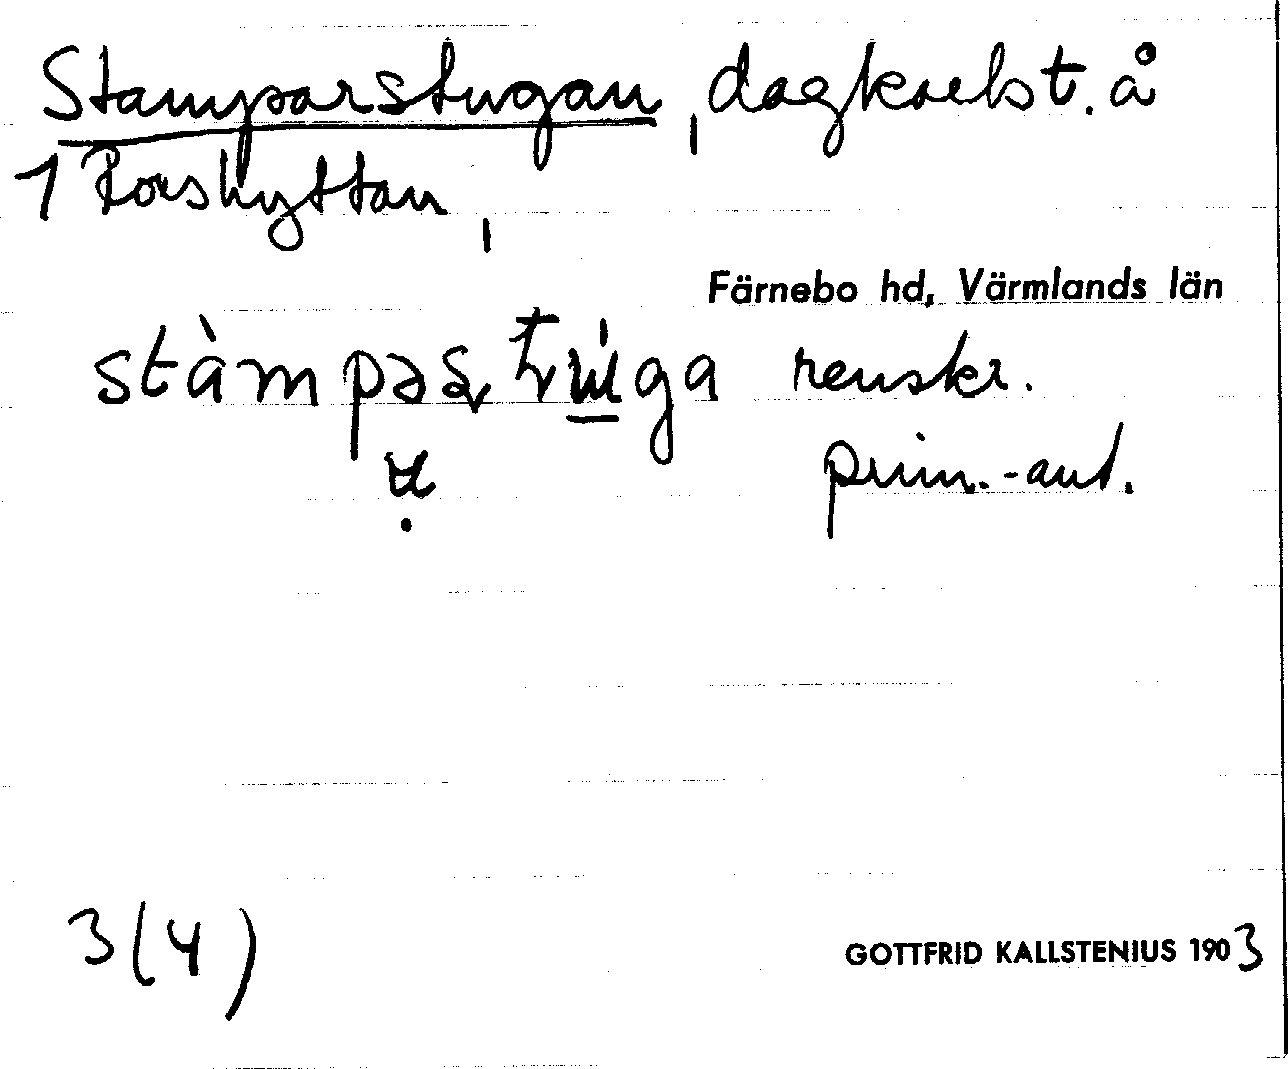 Stamparstugan, dagkarlst. å
1 Horshyttan,
Färnebo hd, Värmlands län
renskr.
prim.-ant.
3(4)
GOTTFRID KALLSTENIUS 1903